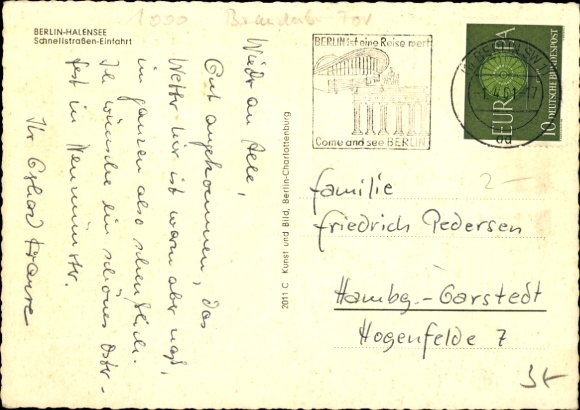 1000 Brandenb. Tor
BERLIN-HALENSEE
Schnellstraßen-Einfahrt
an Alle,
Gut angekommen, das
Wetter hier ist warm aber naß,
im ganzen also scheußlich.
Ich wünsche ein schönes Oster-
fest in
Ihr Erhard Krause
2011 C Kunst und Bild, Berlin-Charlottenburg
BERLIN ist eine Reise wert
Come and see BERLIN
BERLIN SW
-1.4.61-17
ad
EUROPA
10 DEUTSCHE BUNDESPOST
2-
Familie
Friedrich Pedersen
Hambg.-Garstedt
Hogenfelde 7